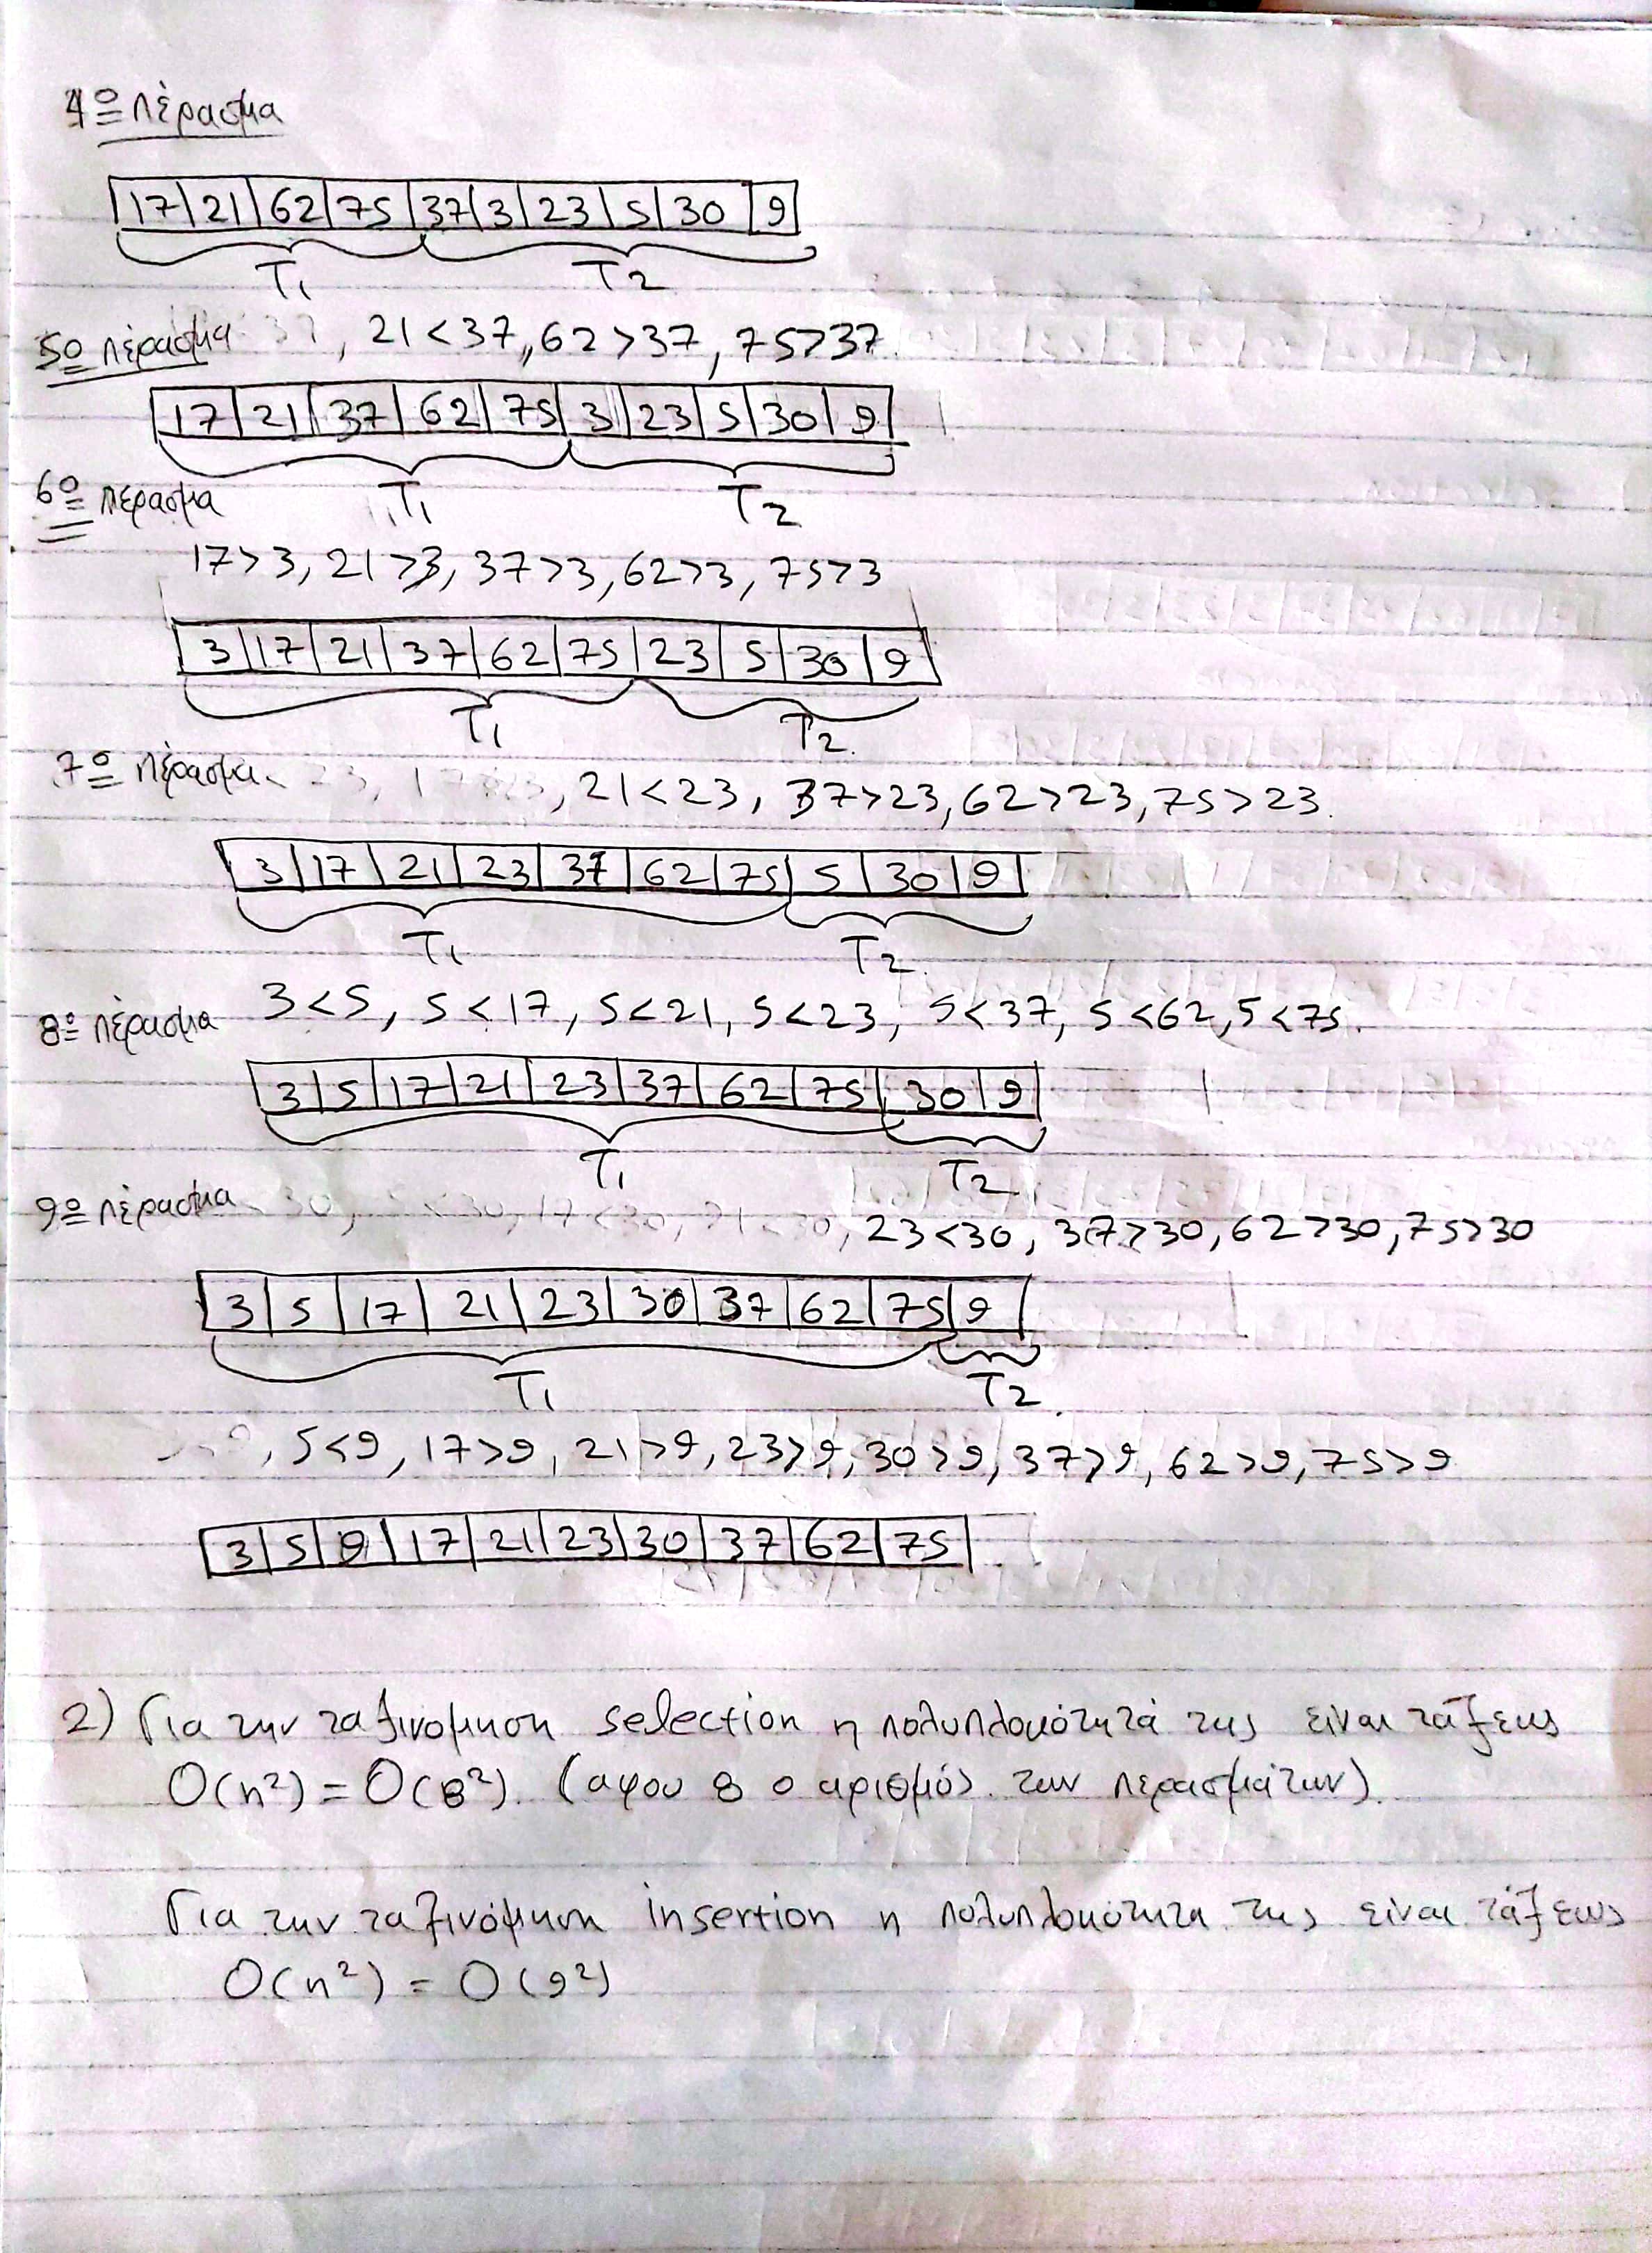 4º πέρασμα
17 | 21 | 62 | 75 | 37 | 3 | 23 | 5 | 30 | 9
T1 T2
5º πέρασμα 37, 21<37, 62>37, 75>37
17 | 21 | 37 | 62 | 75 | 3 | 23 | 5 | 30 | 9
6º πέρασμα T1 T2
17>3, 21>3, 37>3, 62>3, 75>3
3 | 17 | 21 | 37 | 62 | 75 | 23 | 5 | 30 | 9
T1 T2
7º πέρασμα < 23, 17<23, 21<23, 37>23, 62>23, 75>23.
3 | 17 | 21 | 23 | 37 | 62 | 75 | 5 | 30 | 9
T1 T2
8º πέρασμα 3<5, 5<17, 5<21, 5<23, 5<37, 5<62, 5<75.
3 | 5 | 17 | 21 | 23 | 37 | 62 | 75 | 30 | 9
T1 T2
9º πέρασμα < 30, <30, 17<30, 21<30, 23<30, 37>30, 62>30, 75>30
3 | 5 | 17 | 21 | 23 | 30 | 37 | 62 | 75 | 9
T1 T2
, 5<9, 17>9, 21>9, 23>9, 30>9, 37>9, 62>9, 75>9
3 | 5 | 9 | 17 | 21 | 23 | 30 | 37 | 62 | 75
2) Για την ταξινομηση selection η πολυπλοκότητά της είναι τάξεως
O(n²) = O(8²). (αφου 8 ο αριθμός των περασμάτων).
Για την ταξινόμηση insertion η πολυπλοκότητα της είναι τάξεως
O(n²) = O(9²)